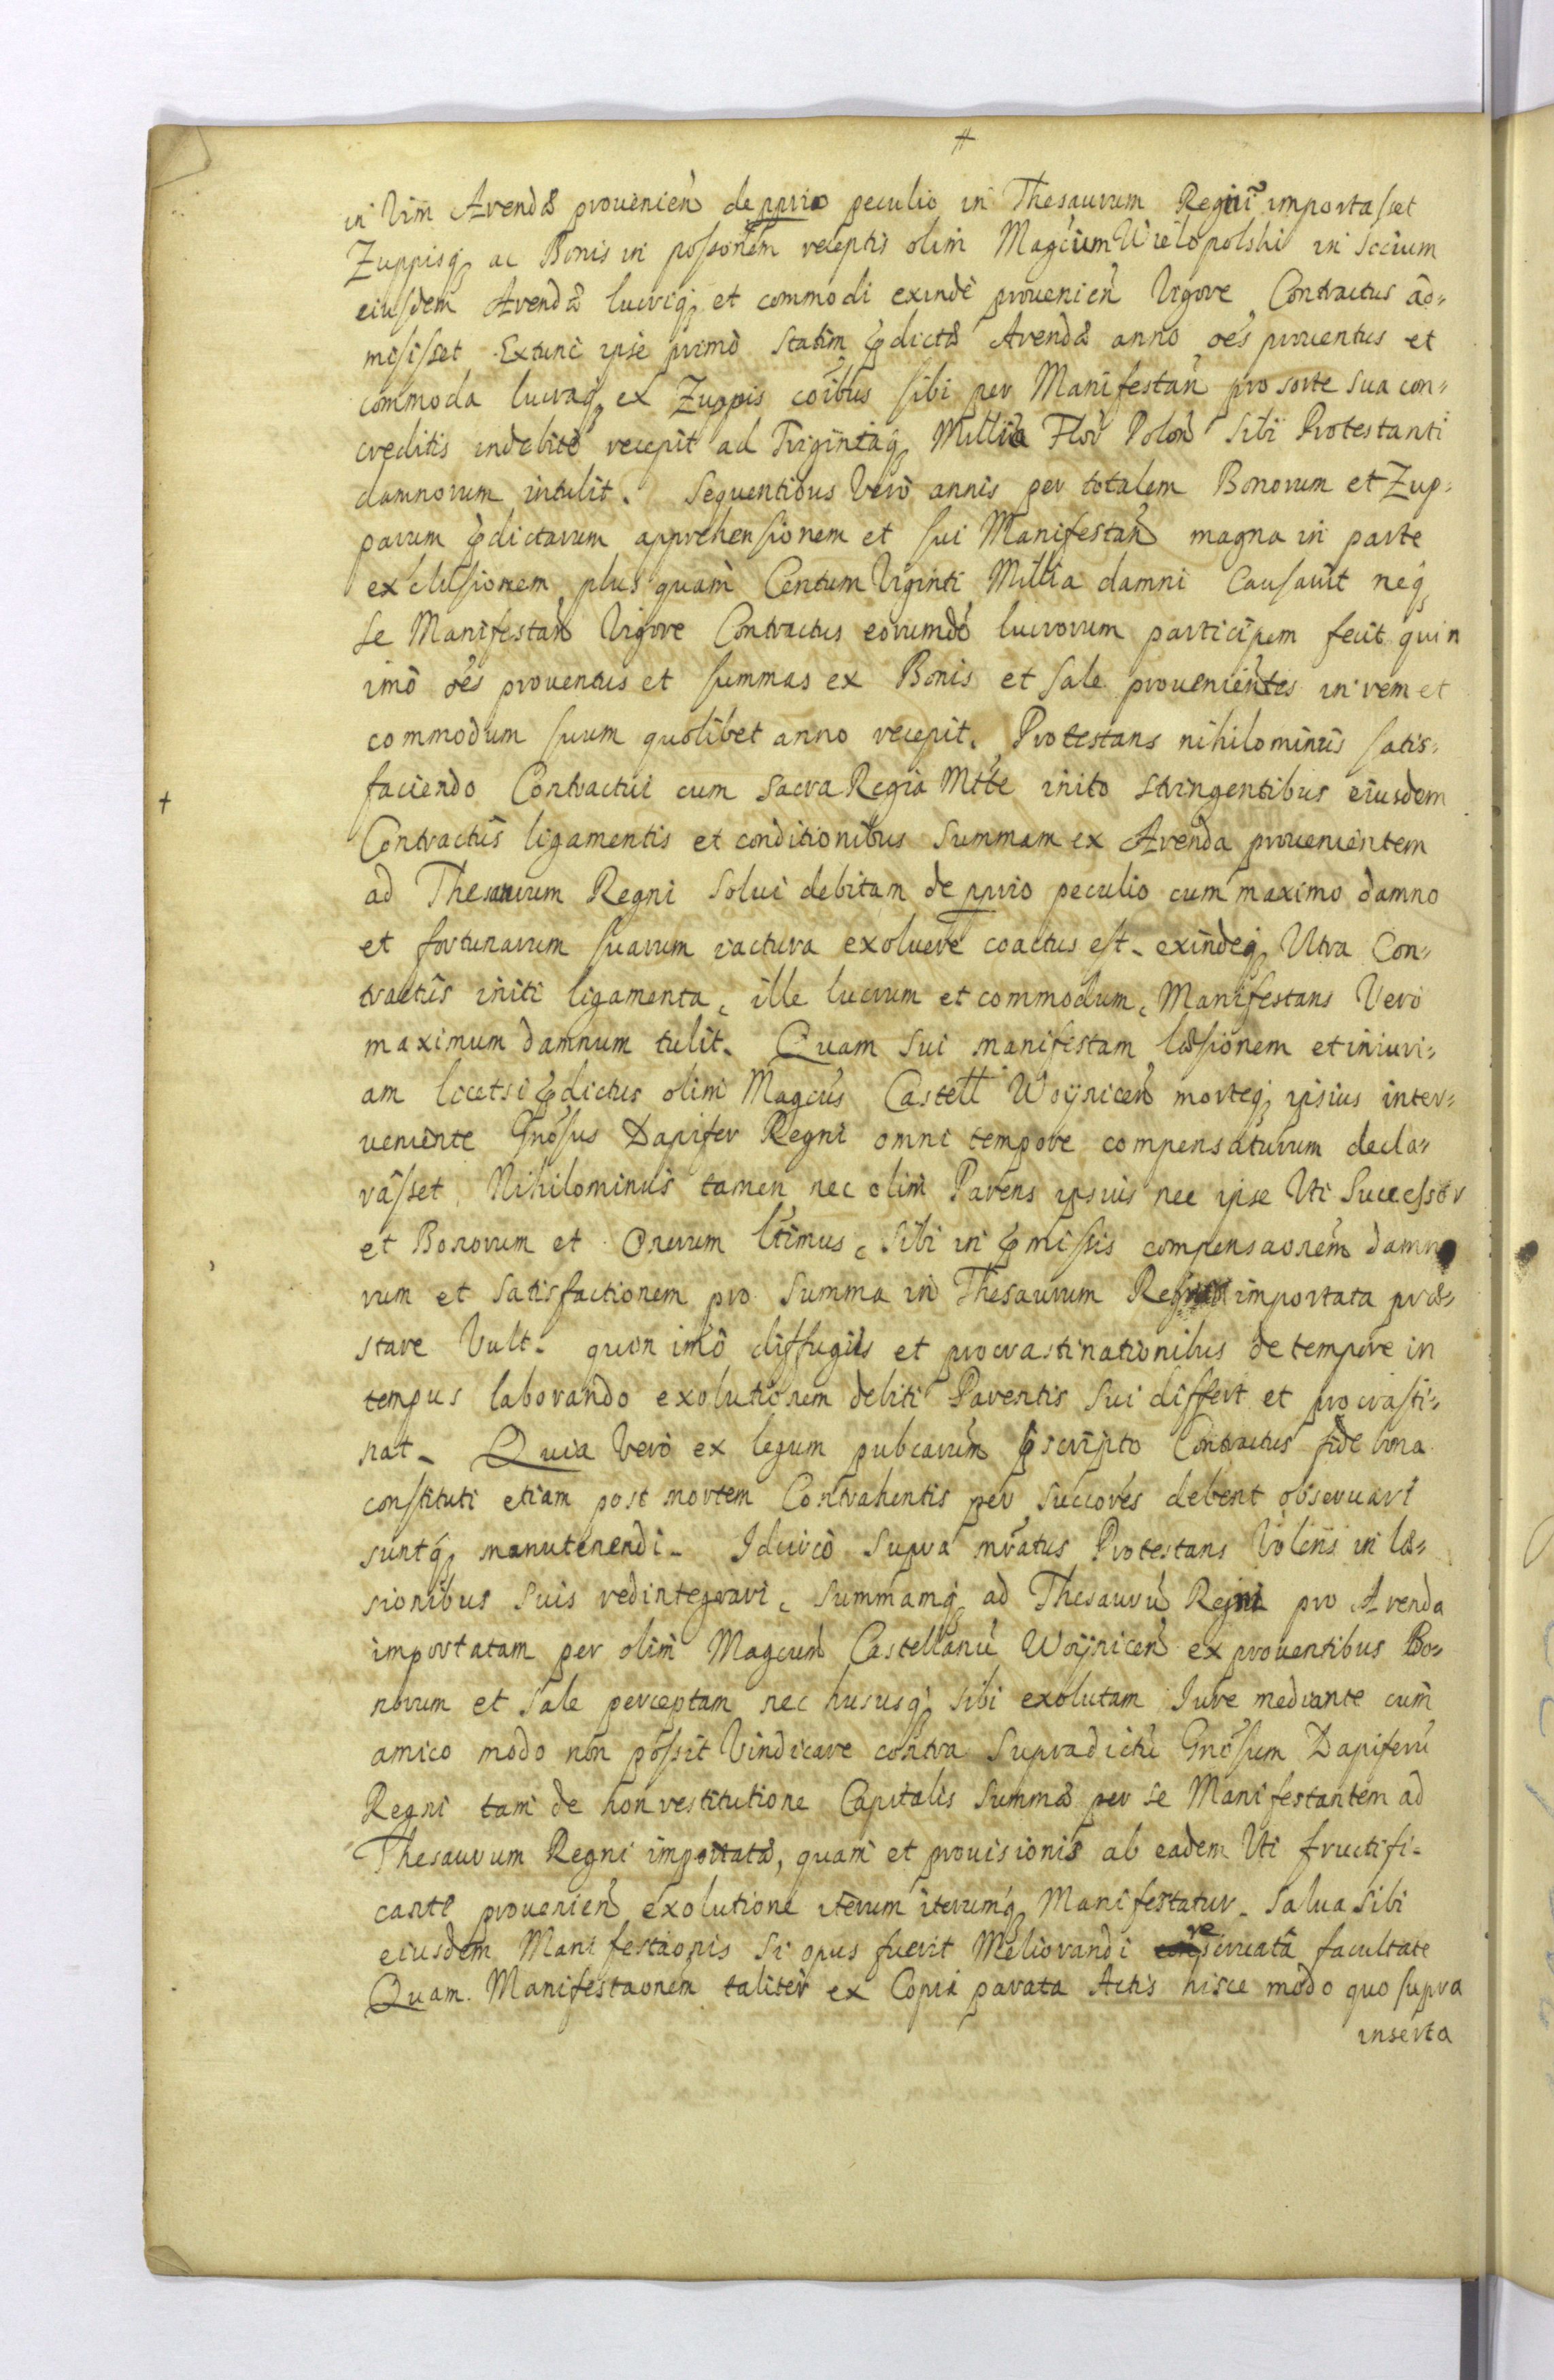 in Vim Arendæ prouenień de pprio peculio in Thesaurum Regni importasset
Zuppisq₃ ac Bonis in possonem receptis olim Magcium Wielopolski in socium
eiusdem Arendæ lucriq₃ et commodi exinde prouenień Vigore Contractus ad=
misisset. Extunc ipse primo statim pdictæ Arendæ anno oes prouentus et
commoda lucraq₃ ex Zuppis coibus sibi per Manifestań pro sorte sua con=
creditis indebite recepit ad Trigintaq₃ Millia Flor Polon sibi Protestanti
damnorum intulit. Sequentibus Vero annis per totalem Bonorum et Zup=
parum pdictarum apprehensionem et sui Manifestań magna in parte
exclusionem, plus quam Centum Viginti Millia damni Causauit neq₃
se Manifestań Vigore Contractus eorumdé lucrorum participem fecit quin
imò oes prouentus et summas ex Bonis et Sale prouenientes in rem et
commodum suum quolibet anno recepit. Protestans nihilominus satis=
faciendo Contractui cum Sacra Regia Mtte inito stringentibus eiusdem
Contractus ligamentis et conditionibus Summam ex Arenda prouenientem
ad Thesaurum Regni Solui debitam de pprio peculio cum maximo damno
et fortunarum suarum iactura exoluere coactus est. exindeq₃ Vltra Con=
tractus initi ligamenta, ille lucrum et commodum, Manifestans Vero
maximum damnum tulit. Quam Sui manifestam læsionem et iniuri=
am licetsi pdictus olim Magcus Castell Woynicen morteq₃ ipsius inter=
ueniente Gnosus Dapifer Regni omni tempore compensaturum decla=
rasset. Nihilominus tamen nec olim Parens ipsius nec ipse Vti Successor
et Bonorum et Onerum ltimus, Sibi in pmissis compensaonem damno
rum et Satisfactionem pro Summa in Thesaurum Regni importata præ=
stare Vult. quin imò diffugiis et procrastinationibus de tempore in
tempus laborando exolutionem debiti Parentis Sui differt et procrasti=
nat. Quia Vero ex legum pubcarum pscripto Contractus fide bona
constituti etiam post mortem Contrahentis per Succores debent obseruari
suntq₃ manutenendi. Idcirco Supra nratus Protestans Volens in læ=
sionibus Suis redintegrari, Summamq₃ ad Thesauru Regni pro Arenda
importatam per olim Magcum Castellanu Woynicen ex prouentibus Bo=
norum et Sale perceptam nec hususq₃ sibi exolutam Iure mediante cum
amico modo non possit Vindicare contra Supradictu Gnosum Dapiferu
Regni tam de non restitutione Capitalis Summæ per se Manifestantem ad
Thesaurum Regni importatæ, quam et prouisionis ab eadem Vti fructifi=
cante prouenień exolutione iterum iterumq₃ Manifestatur. Salua Sibi
eiusdem Manifestaonis Si opus fuerit Meliorandi reseruata facultate
Quam Manifestaonem taliter ex Copia parata Actis hisce modo quo supra
inserta